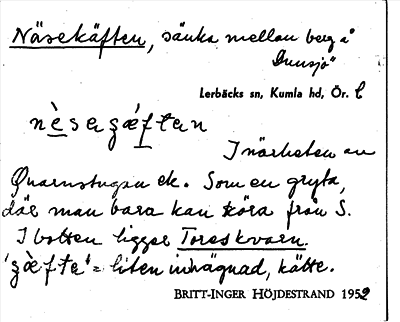 Näsekäften, sänka mellan berg å
Dunsjö
Lerbäcks sn, Kumla hd, Ör. l
nèsegǽftən
I närheten av
Qvarnstugan etc. Som en gryta,
där man bara kan köra från S.
I botten ligger Toreskvarn.
'gæ̀ftə' = liten inhägnad, kätte.
BRITT-INGER HÖJDESTRAND 1952